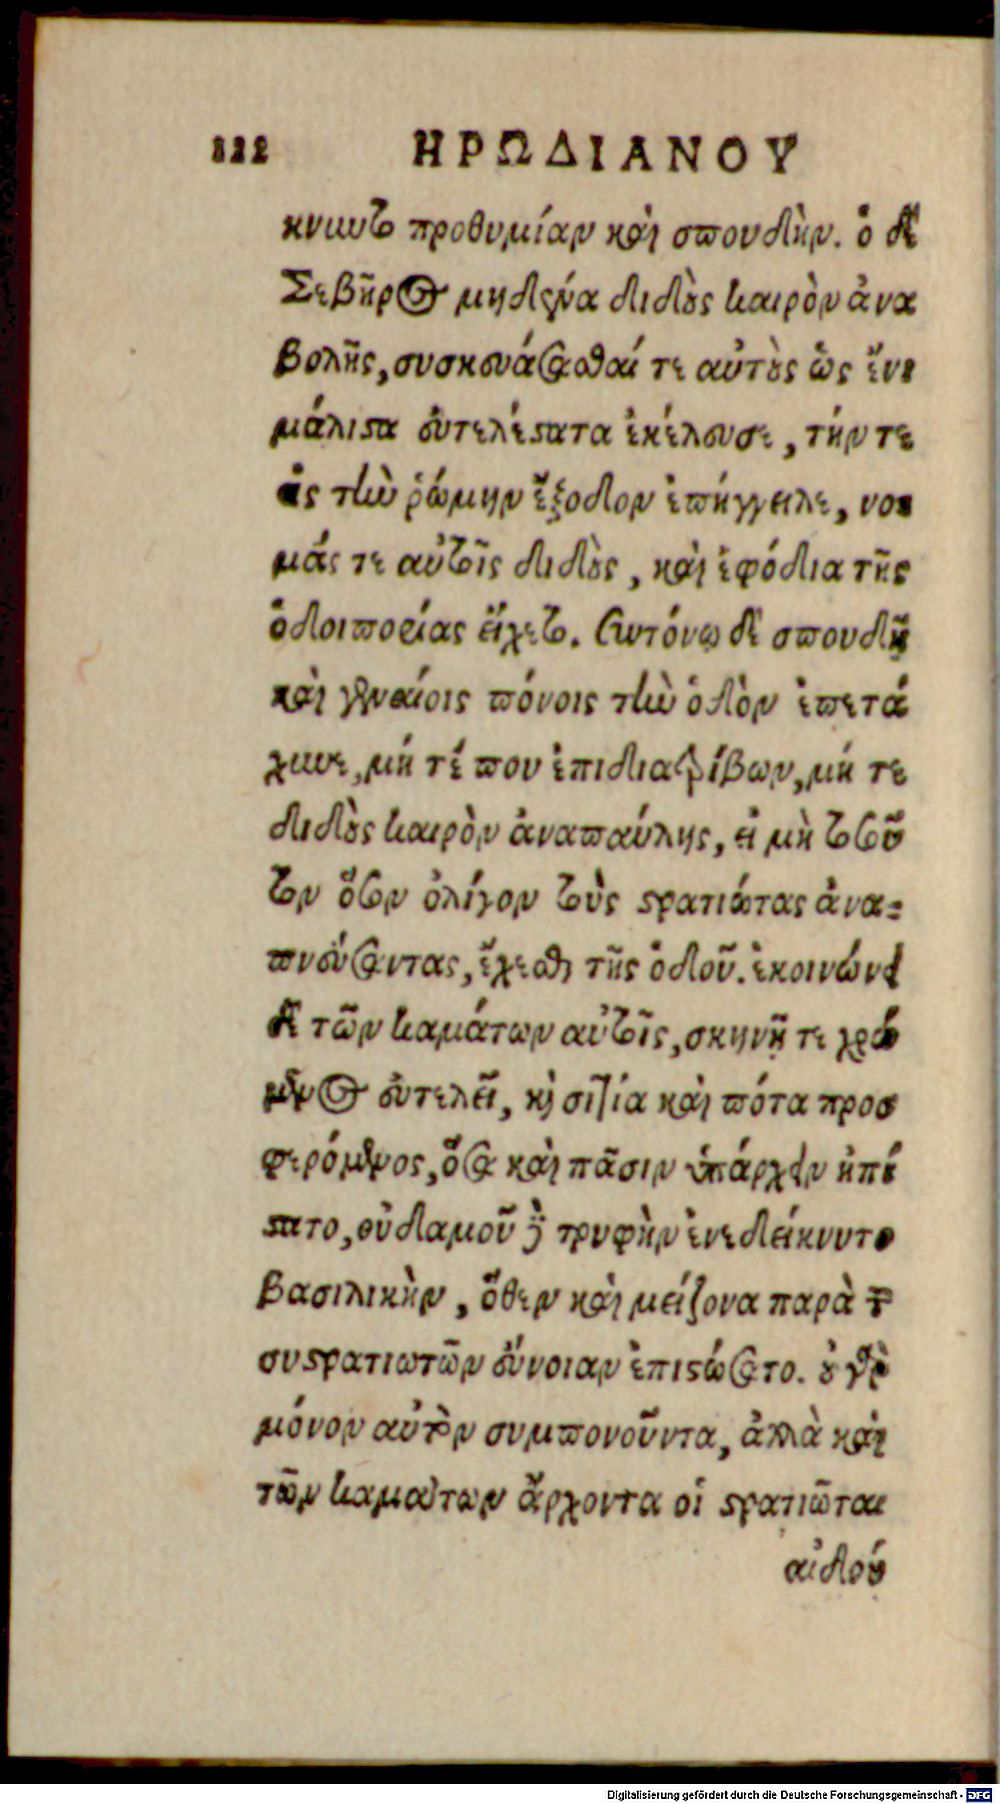 122 ΗΡΩΔΙΑΝΟΥ
κνυντο προθυμίαν καὶ σπουδὴν. ὁ δὲ
Σεβῆρος μηδένα διδοὺς καιρὸν ἀνα
βολῆς, συσκευάσασθαί τε αὐτοὺς ὡς ἔνι
μάλιστα εὐτελέστατα ἐκέλευσε, τήν τε
εἰς τὴν ῥώμην ἔξοδον ἐπήγγειλε, νο
μάς τε αὐτοῖς διδοὺς, καὶ ἐφόδια τῆς
ὁδοιπορίας εἴχετο. συντόνῳ δὲ σπουδῇ
καὶ γενναίοις πόνοις τὴν ὁδὸν ἐπετά
χυνε, μή τέ που ἐπιδιατρίβων, μή τε
διδοὺς καιρὸν ἀναπαύλης, εἰ μὴ τοσοῦ
τον ὅσον ὀλίγον τοὺς στρατιώτας ἀνα=
πνεύσαντας, ἔχεσθαι τῆς ὁδοῦ. ἐκοινώνει
δὲ τῶν καμάτων αὐτοῖς, σκηνῇ τε χρώ
μενος εὐτελεῖ, καὶ σιτία καὶ πότα προσ
φερόμενος, ὅσα καὶ πᾶσιν ὑπάρχειν ἠπί
στατο, οὐδαμοῦ δὲ τρυφὴν ἐνεδείκνυτο
βασιλικὴν, ὅθεν καὶ μείζονα παρὰ τῶν
συστρατιωτῶν εὔνοιαν ἐπιστώσατο. οὐ γὰρ
μόνον αὐτὸν συμπονοῦντα, ἀλλὰ καὶ
τῶν καμάτων ἄρχοντα οἱ στρατιῶται
αἰδού
Digitalisierung gefördert durch die Deutsche Forschungsgemeinschaft - DFG